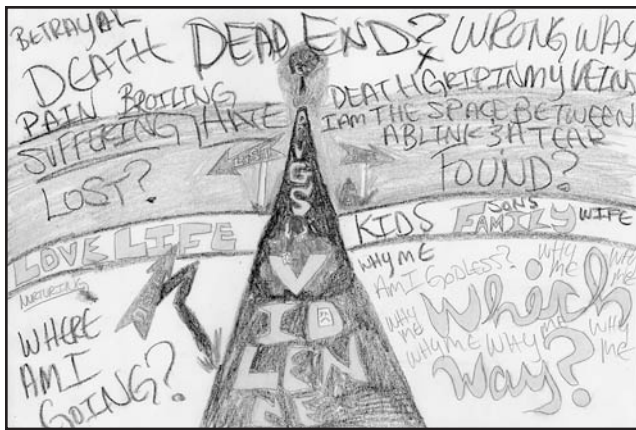 BETRAYAL
DEATH
DEAD END?
WRONG WAY
PAIN BROILING
SUFFERING HATE
DEATH GRIP IN MY VEINS
I AM THE SPACE BETWEEN
A BLINK & A TEAR
LOST?
FOUND?
LOVE LIFE
KIDS SONS FAMILY WIFE
NURTURING
WHERE
AM I
GOING?
VIOLENCE
WHY ME
AM I GODLESS?
WHY ME
WHY ME
Which
Way?
WHY ME
WHY ME WHY ME
WHY ME